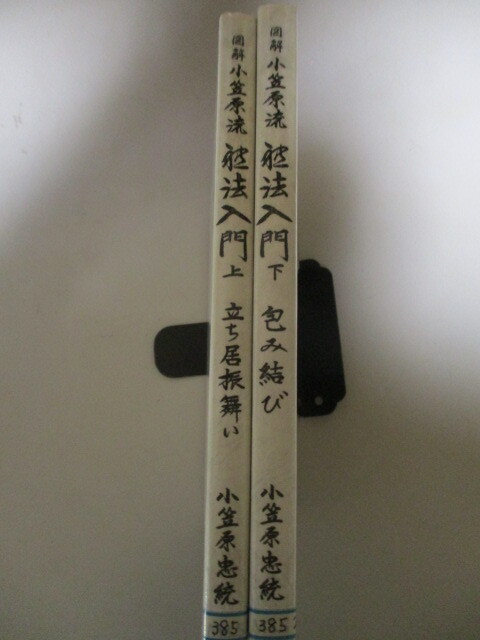 圖解 小笠原流 躾法入門 上 立ち居振舞い 小笠原忠統
385
圖解 小笠原流 躾法入門 下 包み結び 小笠原忠統
385